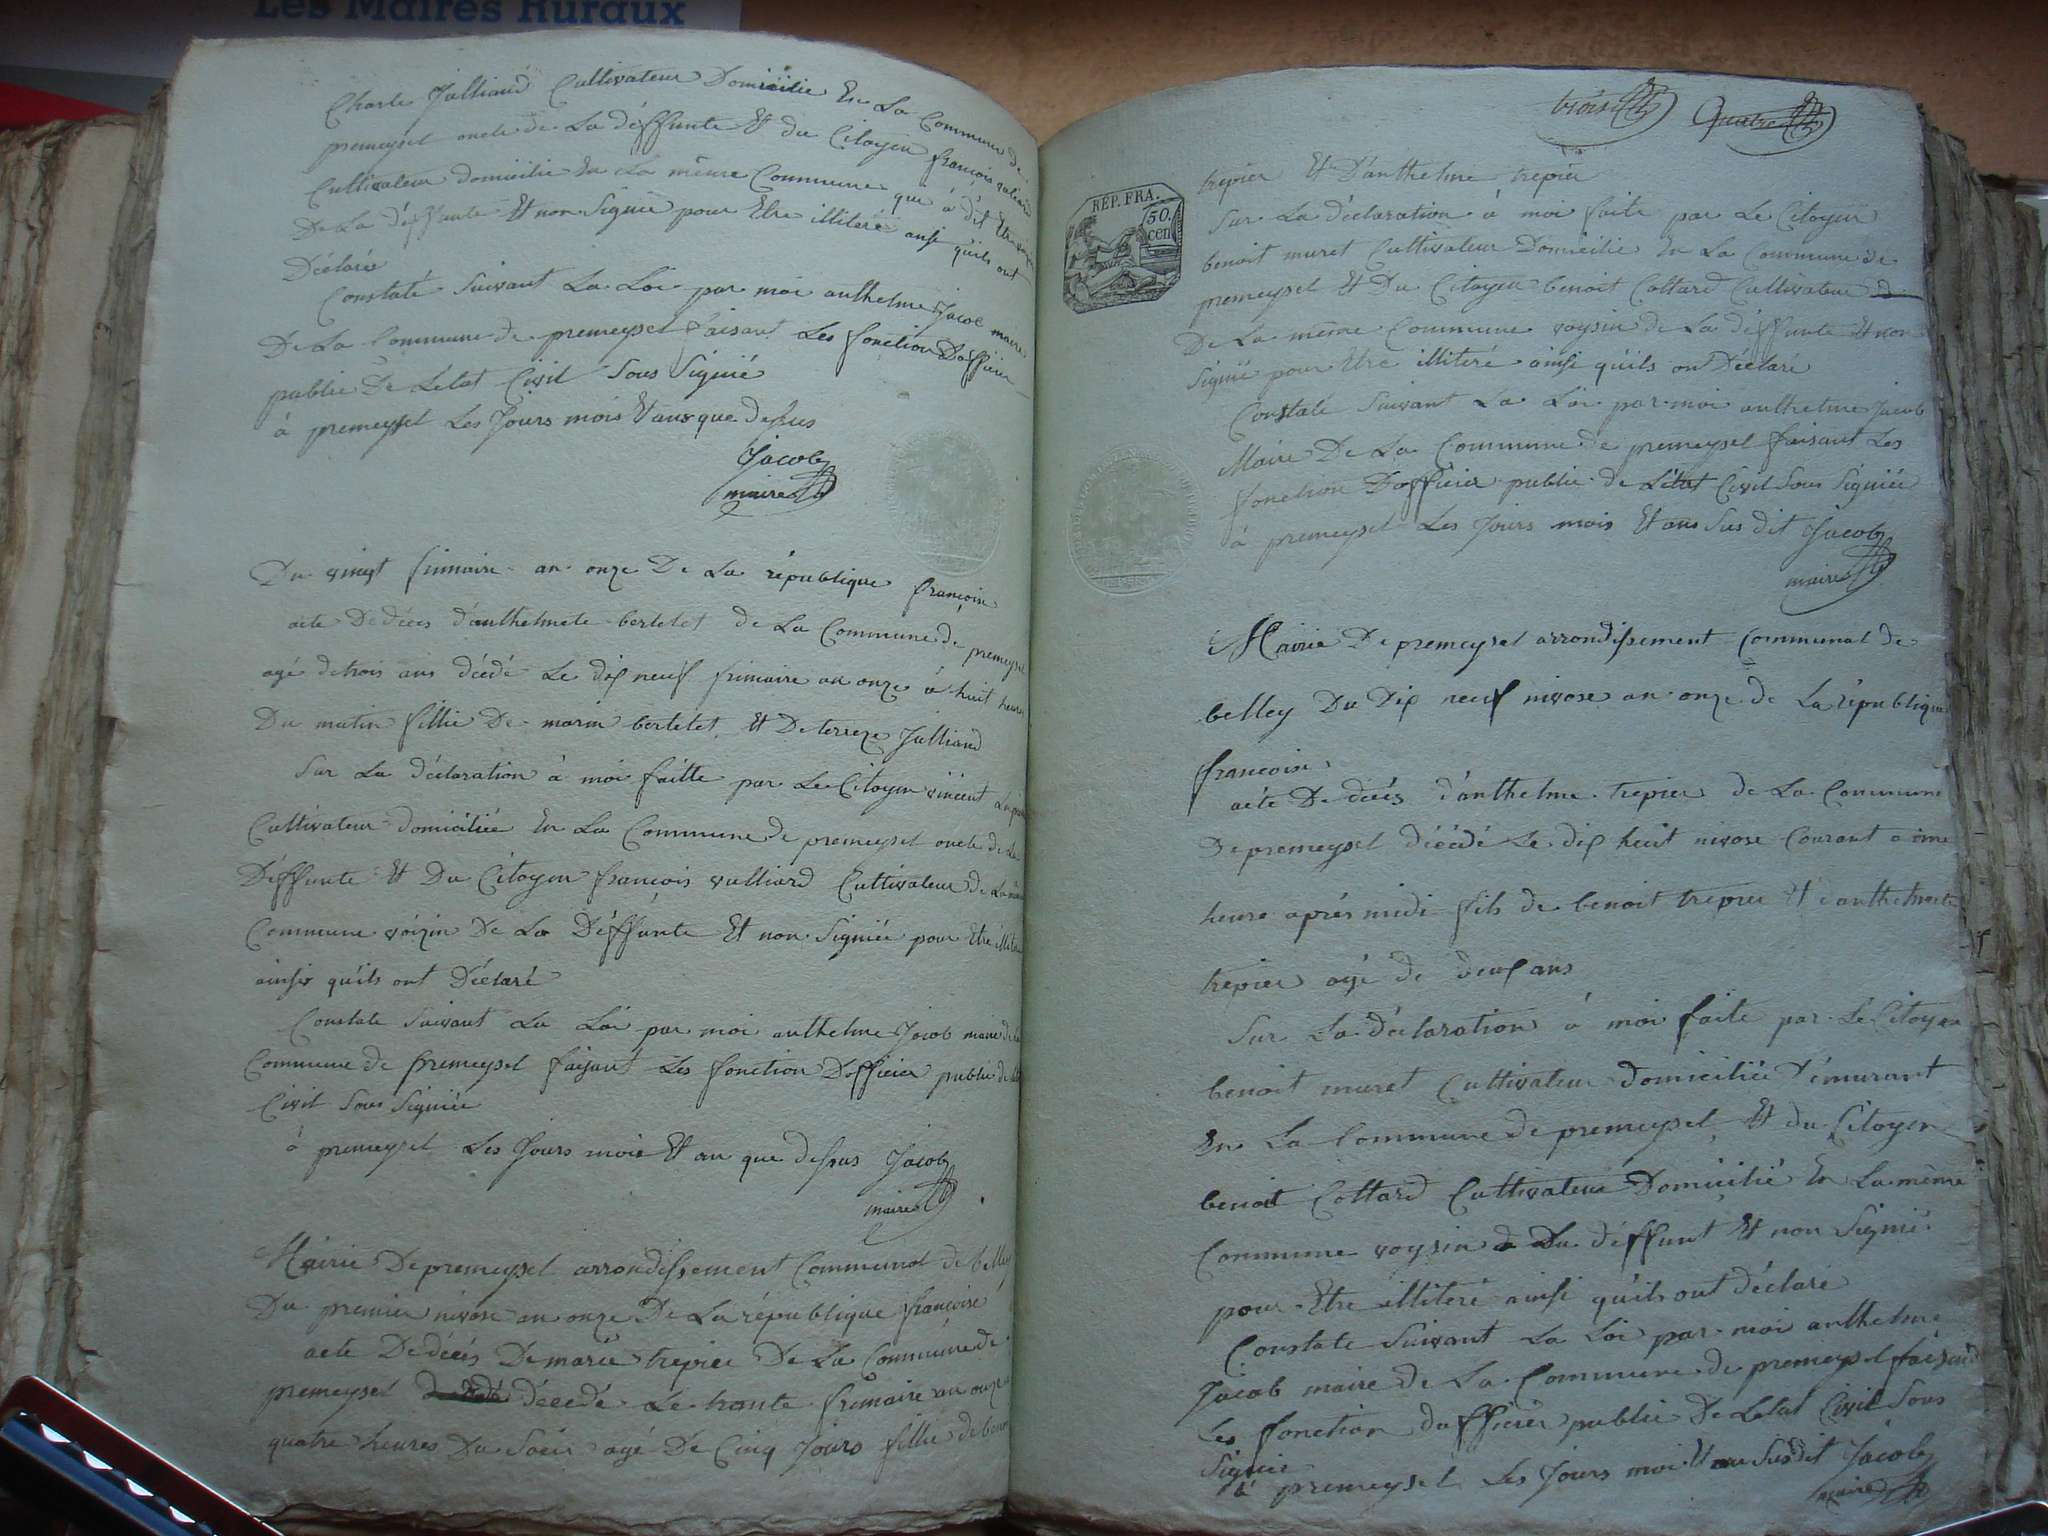 Les Maires Ruraux
Charle Julliand Cultivateur Domicilie En La Commune de
premeysel oncle de La déffunte Et du Citoyen françois
Cultivateur domicilie En La même Commune qui à dit Etre
De La déffunte Et non Signée pour Etre illiteré ainsi qu'ils ont
Déclarée
Constaté Suivant La Loi par moi anthelme Jacob maire
De La Commune de premeysel faisant Les fonction Dofficier
public De Letat Civil Sous Signié
à premeysel Les Jours mois Et ans que dessus
Jacob
maire
Du vingt frimaire an onze De La république françoise
acte De décés d'anthelmete bertetet de La Commune de premeysel
agé de trois ans décédé Le dix neuf frimaire an onze à huit heures
Du matin fillie De marin bertetet, Et De tereze Julliand
Sur La déclaration à moi faitte par Le Citoyen vincent
Cultivateur domiciliée En La Commune de premeysel oncle de La
Déffunte Et Du Citoyen françois vulliard Cultivateur de La même
Commune voizin De La Déffunte Et non Signiée pour Etre
ainsi qu'ils ont Déclaré
Constate Suivant La Loi par moi anthelme Jacob maire de La
Commune de premeysel faisant Les fonction Dofficier public de
Civil Sous Signiée
à premeysel Les Jours mois Et an que dessus Jacob
maire
Mairie De premeysel arrondissement Communal de belley
Du premier nivose an onze De La république françoise
acte De décés De marie trepier De La Commune de
premeysel décedé Le trante frimaire an onze
quatre heures Du Soir agé De Cinq Jours fillie de benoit
trois quatre
REP. FRA.
50.
cen
trepier Et D'anthelme trepier
Sur La déclaration à moi faite par Le Citoyen
benoit muret Cultivateur Domicilié En La Commune de
premeysel Et Du Citoyen benoit Cottard Cultivateur
De La même Commune voysin de La déffunte Et non
Signié pour Etre illiteré ainsi qu'ils on Déclaré
Constaté Suivant La Loi par moi anthelme Jacob
Maire De La Commune de premeysel faisant Les
fonction Dofficier public de Létat Civil Sous Signiée
à premeysel Les Jours mois Et ans Sus dit Jacob
maire
Mairie De premeysel arrondissement Communal de
belley Du Dix neuf nivose an onze de La république
françoise
acte De décés d'anthelme trepier de La Commune
De premeysel décédé Le dix huit nivose Courant a une
heure aprés midi fils de benoit trepier Et d'anthelmete
trepier agé de deux ans
Sur La déclaration à moi faite par Le Citoyen
benoit muret Cultivateur domiciliée démurant
En La Commune de premeysel Et du Citoyen
benoit Cottard Cultivateur Domicilié En La même
Commune voysin du déffunt Et non Signié
pour Etre illiteré ainsi qu'ils ont déclaré
Constate Suivant La Loi par moi anthelme
Jacob maire de La Commune de premeysel faisant
Les fonction dofficier public De Letat Civil Sous
Signié
à premeysel Les Jours moi Et an Susdit Jacob
maire